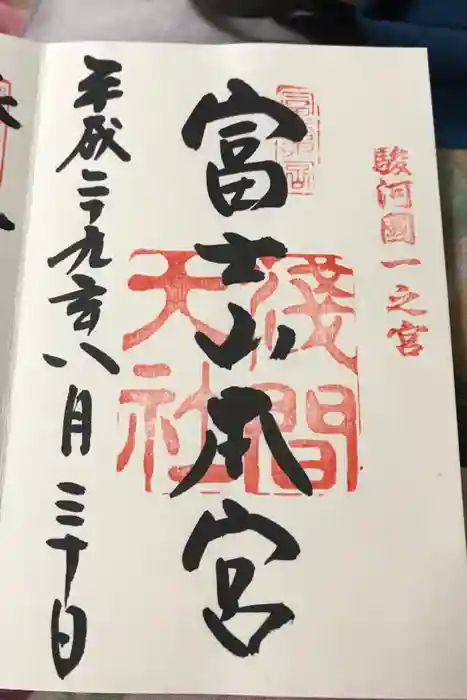 駿河國一之宮
富士山本宮
淺間大社
平成二九年八月三十日